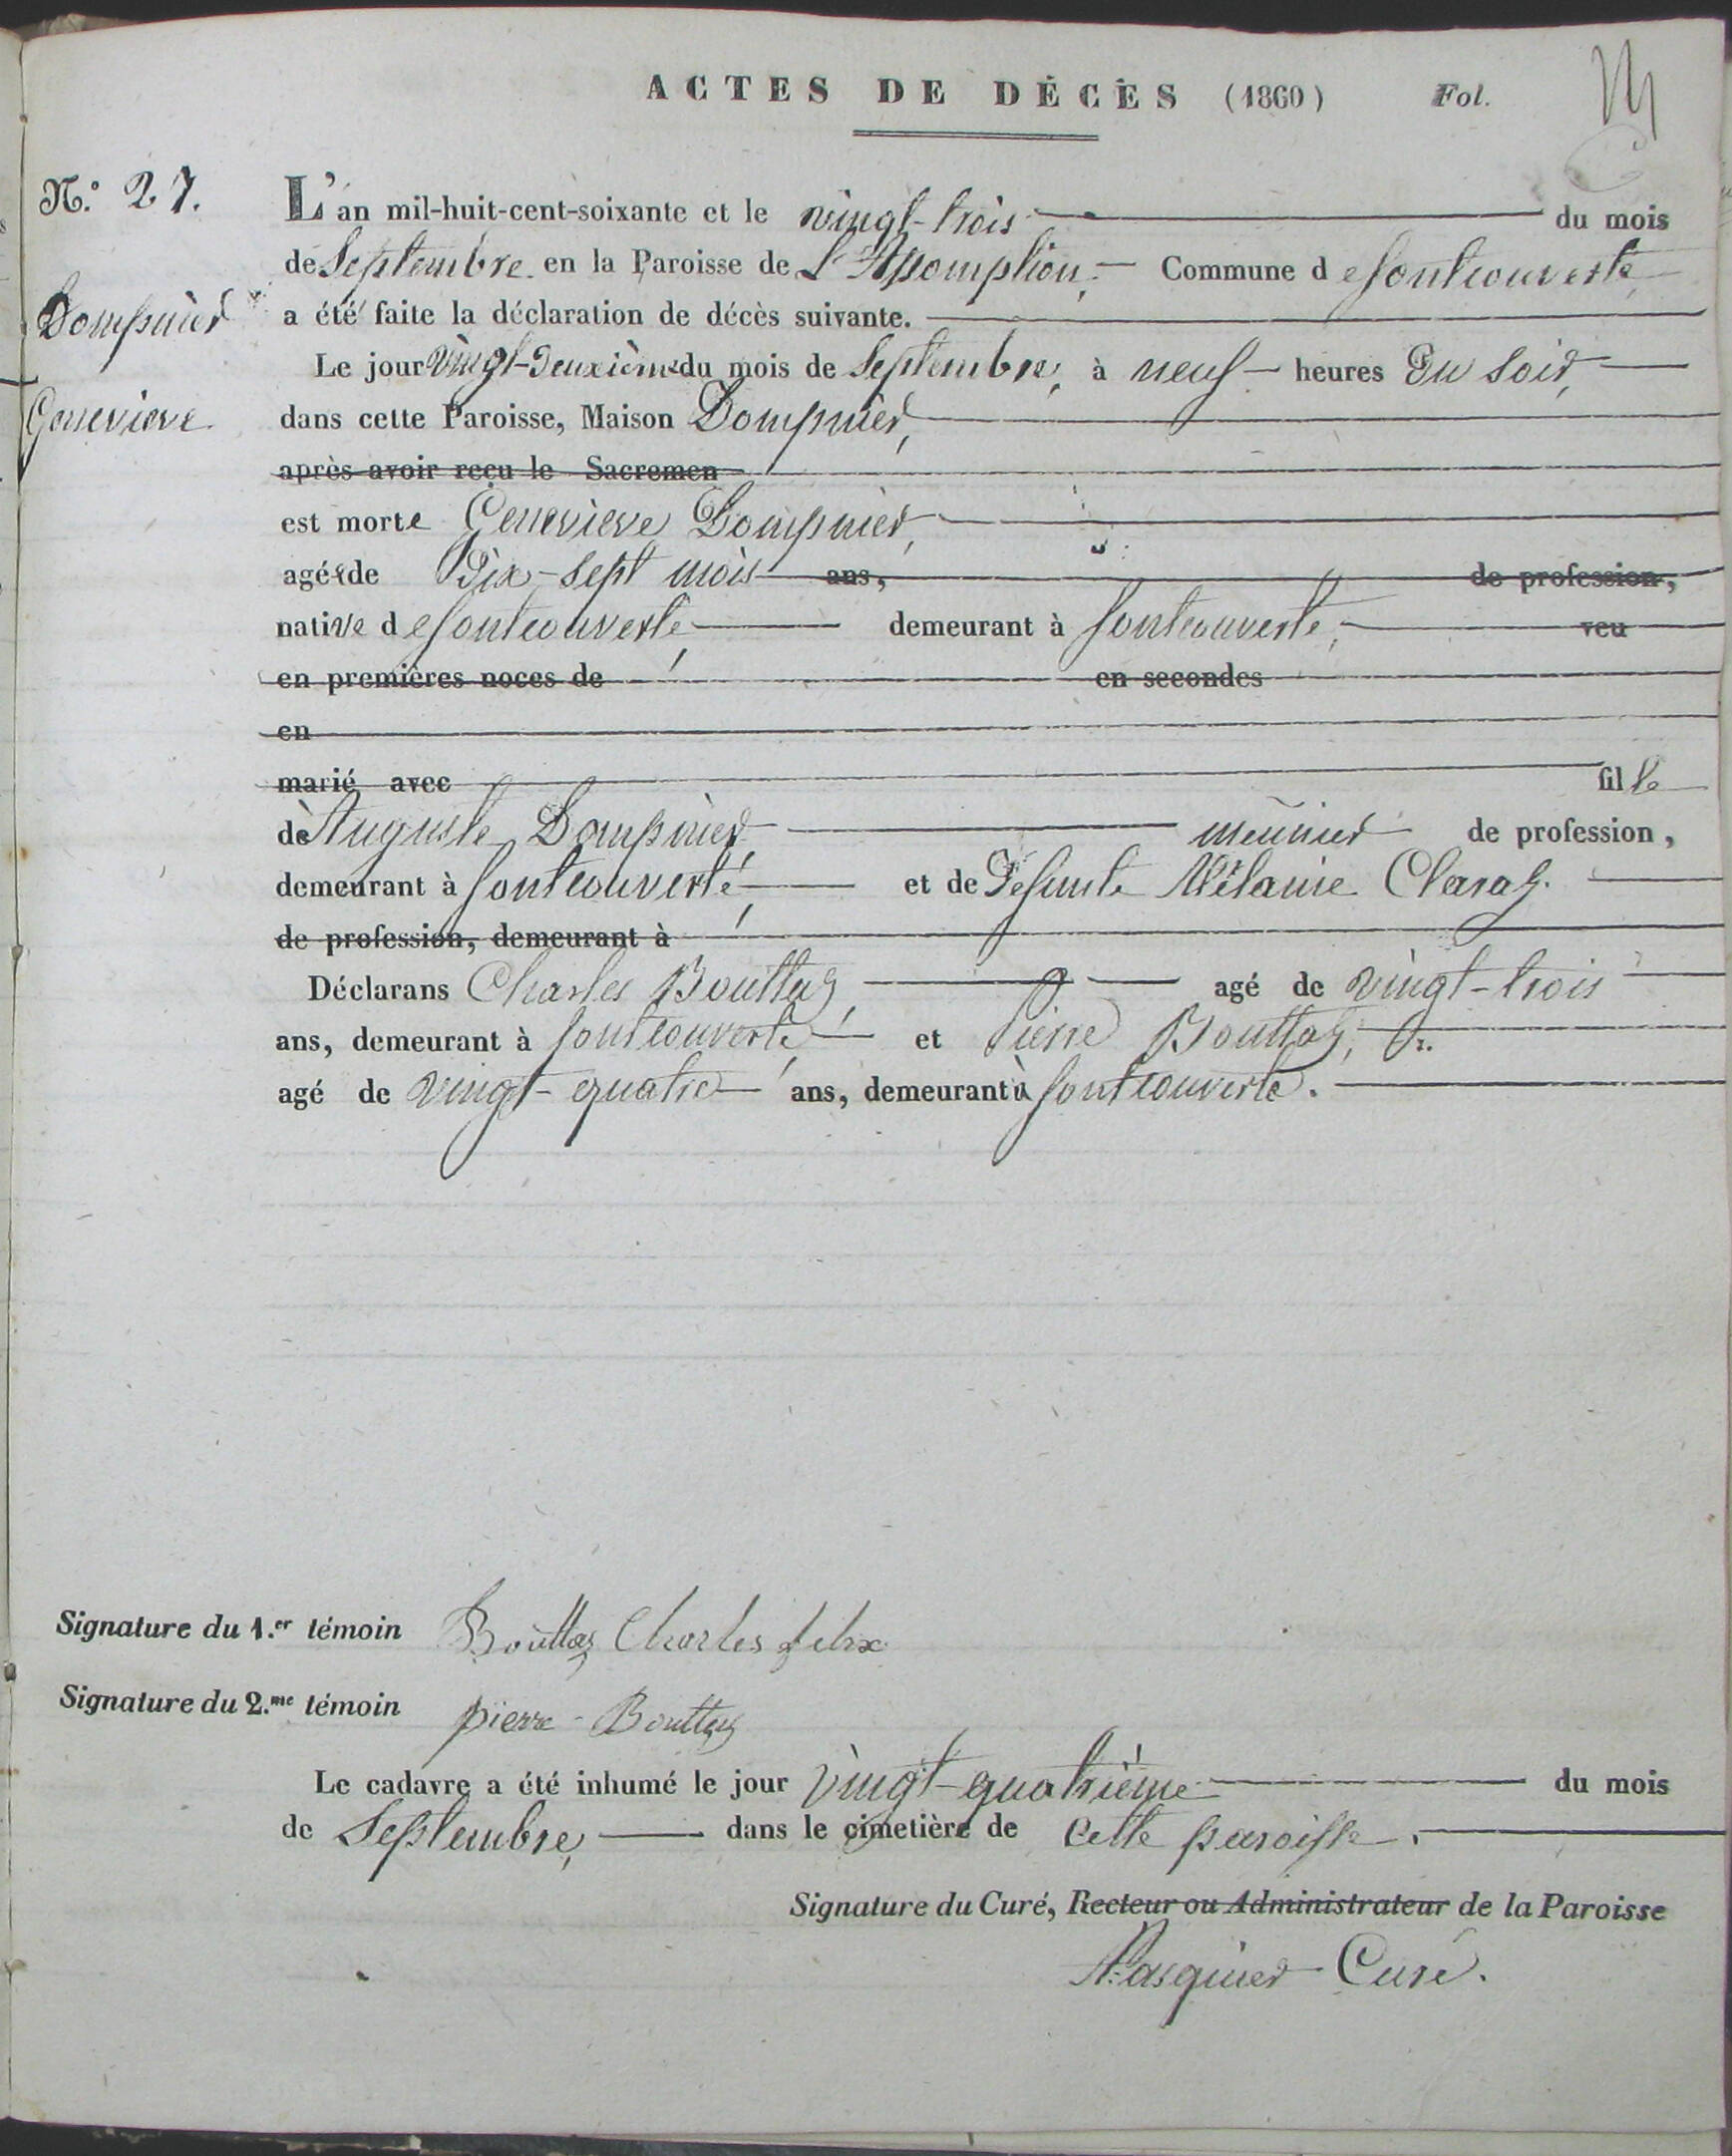 ACTES DE DÉCÈS (1860) Fol. 14
N.° 27.
Dompnier
Geneviève
L'an mil-huit-cent-soixante et le vingt-trois du mois
de Septembre en la Paroisse de L'Assomption, Commune de fontcouverte,
a été faite la déclaration de décès suivante.
Le jour vingt-deuxième du mois de Septembre, à neuf heures du soir,
dans cette Paroisse, Maison Dompnier,
après avoir reçu le Sacremen
est morte Geneviève Dompnier,
agée de Dix-sept mois ans, de profession,
native de fontcouverte, demeurant à fontcouverte, veu
en premières noces de en secondes
en
marié avec fille
de Auguste Dompnier, meûnier de profession,
demeurant à fontcouverte, et de Defunte Mélanie Claraz.
de profession, demeurant à
Déclarans Charles Bouttaz, agé de vingt-trois
ans, demeurant à fontcouverte, et Pierre Bouttaz,
agé de vingt-quatre ans, demeurant à fontcouverte.
Signature du 1.er témoin Bouttaz Charles felix
Signature du 2.me témoin pierre Bouttaz
Le cadavre a été inhumé le jour vingt-quatrième du mois
de Septembre, dans le cimetière de cette paroisse.
Signature du Curé, Recteur ou Administrateur de la Paroisse
Pasquier Curé.